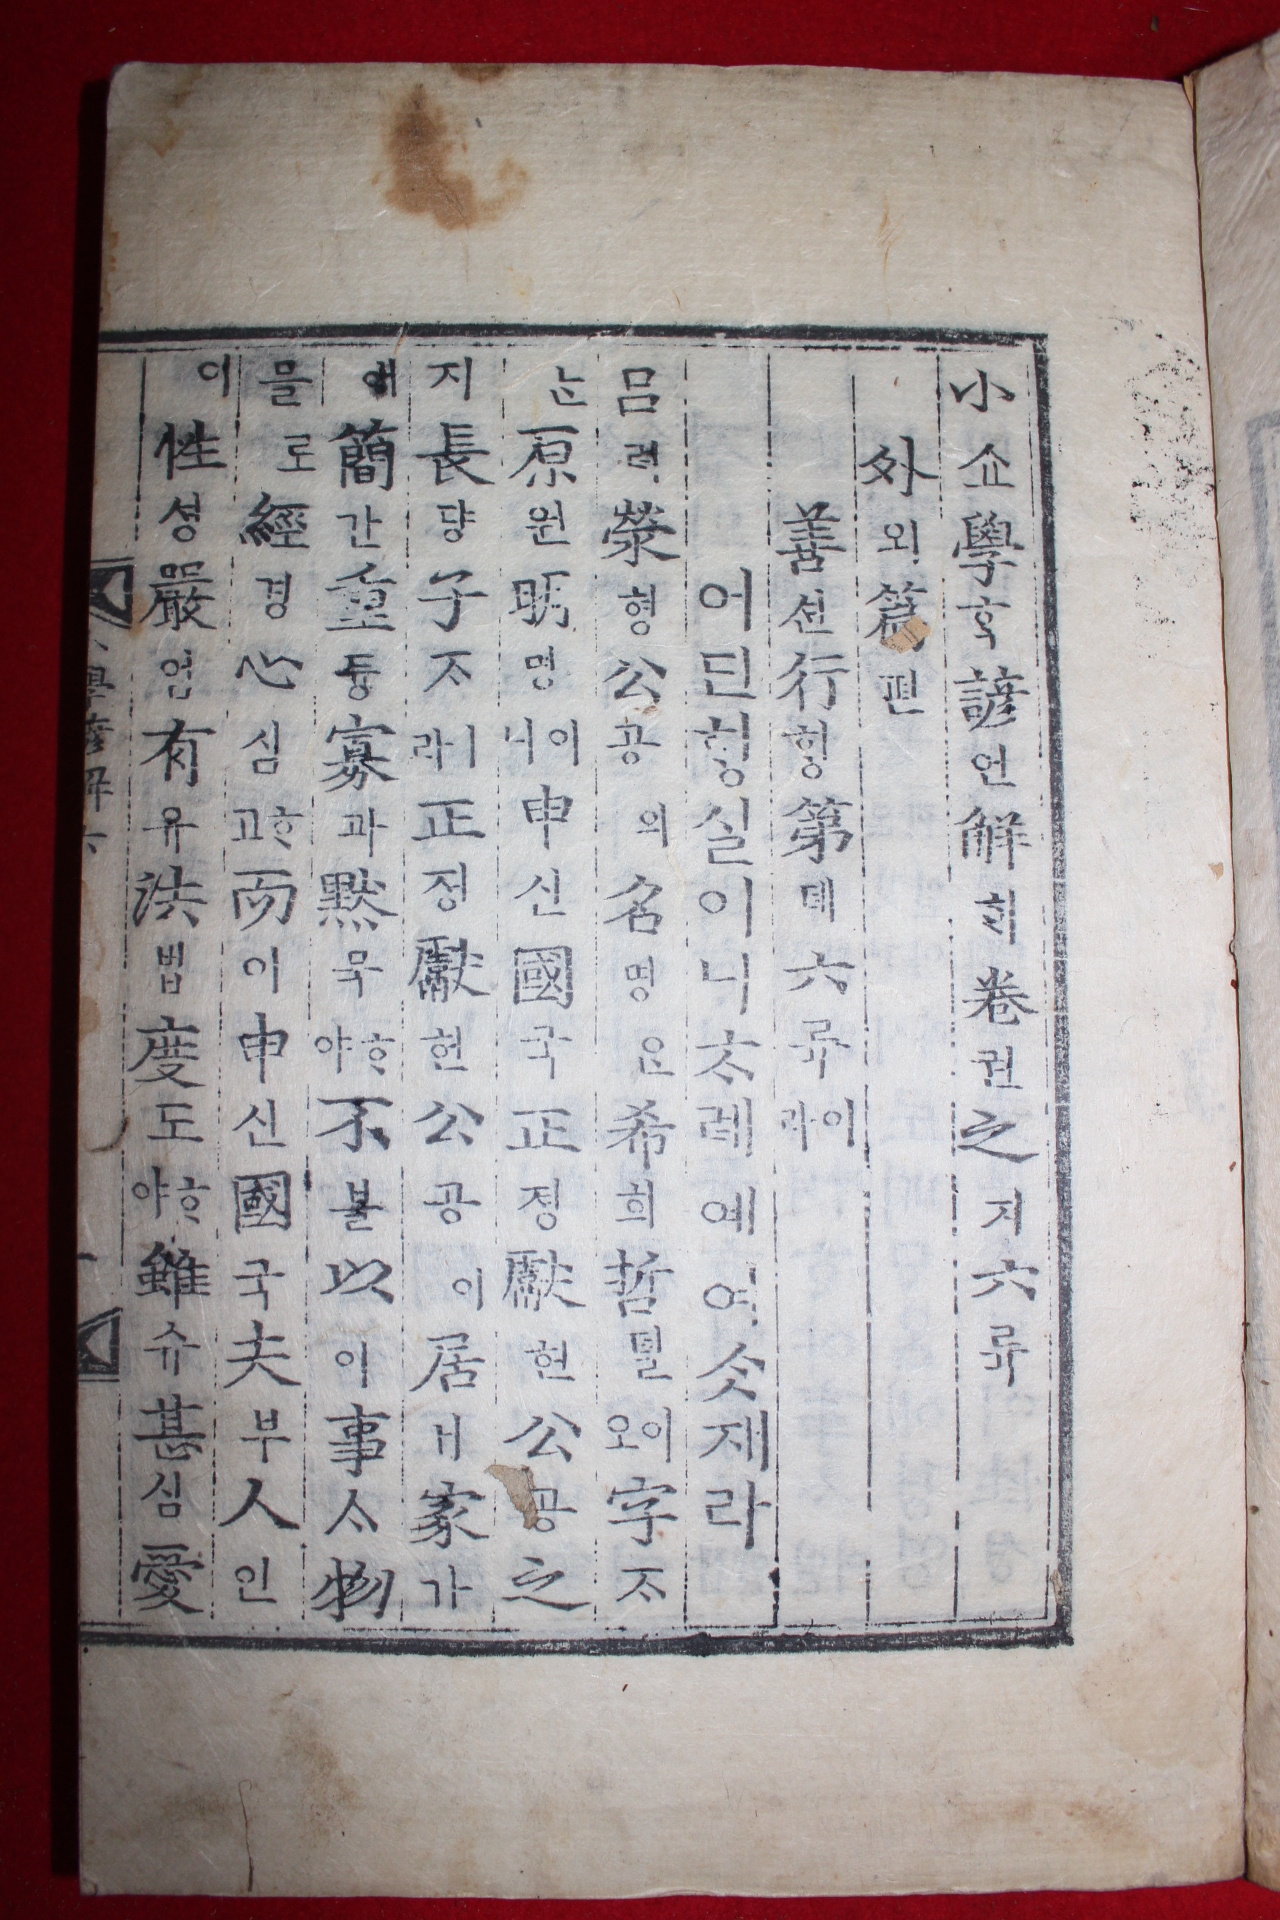 小쇼學ᄒᆞᆨ諺언解ᄒᆡ卷권之지六류
外외篇편
善션行ᄒᆡᆼ第뎨六류이라
어딘ᄒᆡᆼ실이니ᄎᆞ레예여ᄉᆞᆺ재라
呂려滎형公공의名명ᄋᆞᆫ希희哲텰이오字ᄌᆞ
ᄂᆞᆫ原원明명이니申신國국正졍獻헌公공之
지長댱子ᄌᆞㅣ라正졍獻헌公공이居거家가
애簡간重듕寡과黙묵ᄒᆞ야不블以이事ᄉᆞ物
믈로經경心심ᄒᆞ고而이申신國국夫부人인
이性셩嚴엄有유法법度도ᄒᆞ야雖슈甚심愛
學諺解六